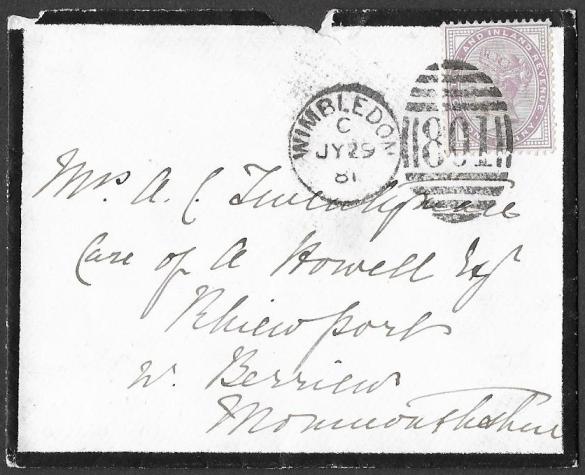 AND INLAND REVENUE
WIMBLEDON
C
JY 29
81
801
Mrs A. C. Twentyman
Care of A Howell Esq
Rhiewport
nr. Berriew
Monmouthshire